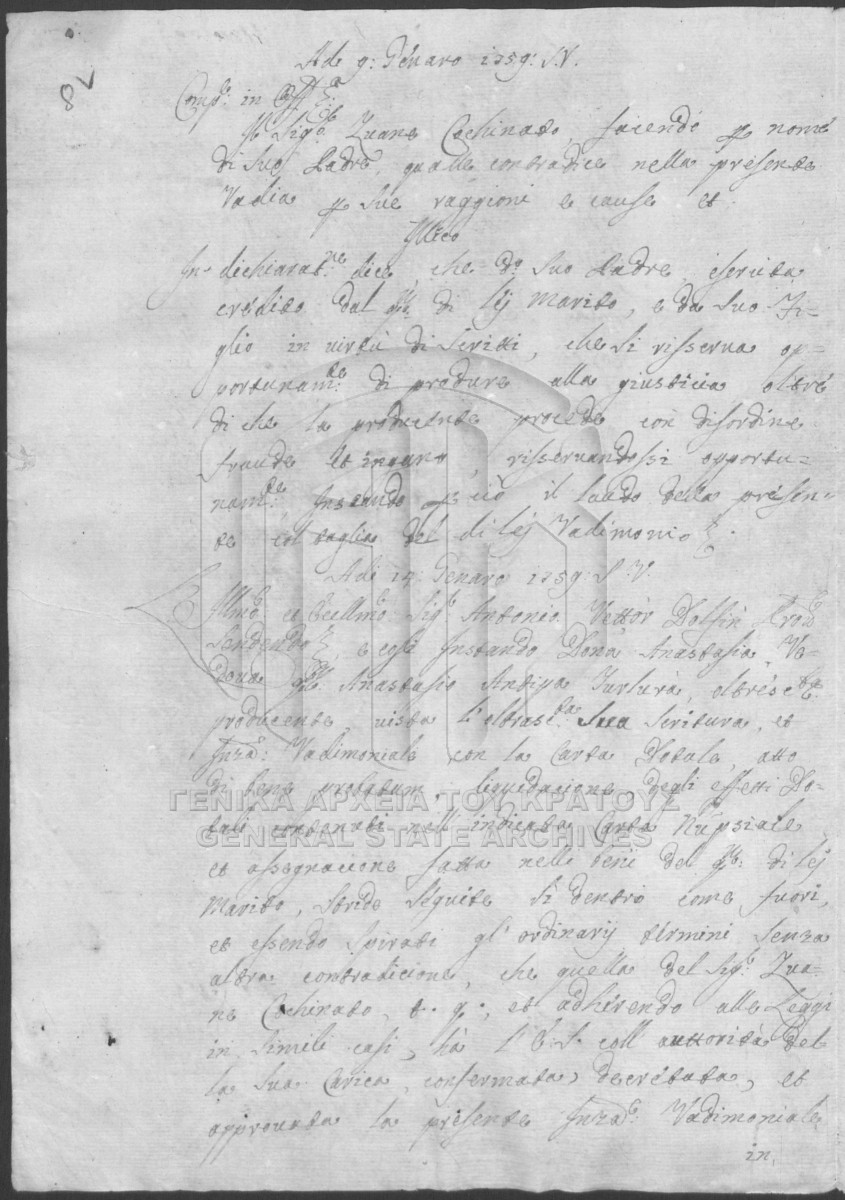 8V
Adi 9: Genaro 1759: S.V.
Comp.e in Off.o
Il Sig.r Zuane Cochinato, facendo p nome
di suo Padre, qualle contradice nella presente
Vadia p sue raggioni e cause et
Illico
In dichiarat.ne dice che d.o suo Padre esercita
credito dal q.m di lej Marito, e da suo Fi-
glio in virtù di Scritti, che si risserva op-
portunam.te di produre alla giusticia oltre
di che la producente procede con disordine
fraude et ingano, risservandossi opportu-
nam.te, Instando p ciò il laudo della presen-
te col taglio del di lej Vadimonio
Adi 14: Genaro 1759: S.V.
Illmo et Ecellmo Sig.r Antonio Vettor Dolfin Prov.r
Sentendo, e così Instando Dona Anastasia Ve-
dova q.m Anastasio Turlura, oltrescta
producente, vista l'oltrascta sua Scritura, et
Inza: Vadimoniale con la Carta Dotale, atto
di bene probatum, liquidacione degli effetti Do-
tali contenuti nell'indicata Carta Nupsiale
et assegnacione fatta nelli beni del q.m di lej
Marito, stride seguite sì dentro come fuori,
et essendo spirati gl'ordinarij termini senza
altra contradicione, che quella del Sig.r Zua-
ne Cochinato, et adhirendo alle Leggi
in simili casi, hà l'E.S. coll auttorità del
la sua Carica, confermata, decretata, et
approvata la presente Inza: Vadimoniale
in
ΓΕΝΙΚΑ ΑΡΧΕΙΑ ΤΟΥ ΚΡΑΤΟΥΣ
GENERAL STATE ARCHIVES